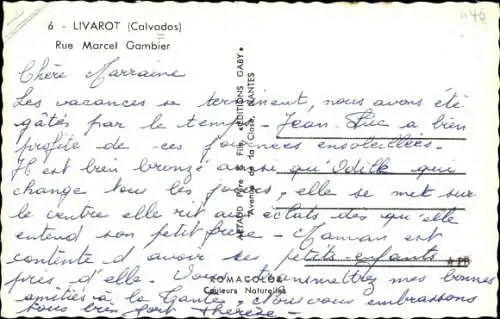 6 - LIVAROT (Calvados)
Rue Marcel Gambier
Chère Marraine
Les vacances se terminent, nous avons été
gâtés par le temps - Jean-Luc a bien
profité de ces journées ensoleillées.
Il est bien bronzé qu'Odile qui
change tous les jours, elle se met sur
le ventre elle rit aux éclats dès qu'elle
entend son petit frère - Maman est
contente d'avoir ses petits-enfants
près d'elle. Vous transmettrez mes bonnes
amitiés à la Tante. Nous vous embrassons
tous bien fort Thérèse
ARTAUD Père & Fils, «EDITIONS GABY»
Avenue de la Close, NANTES
ROMACOLOR
Couleurs Naturelles